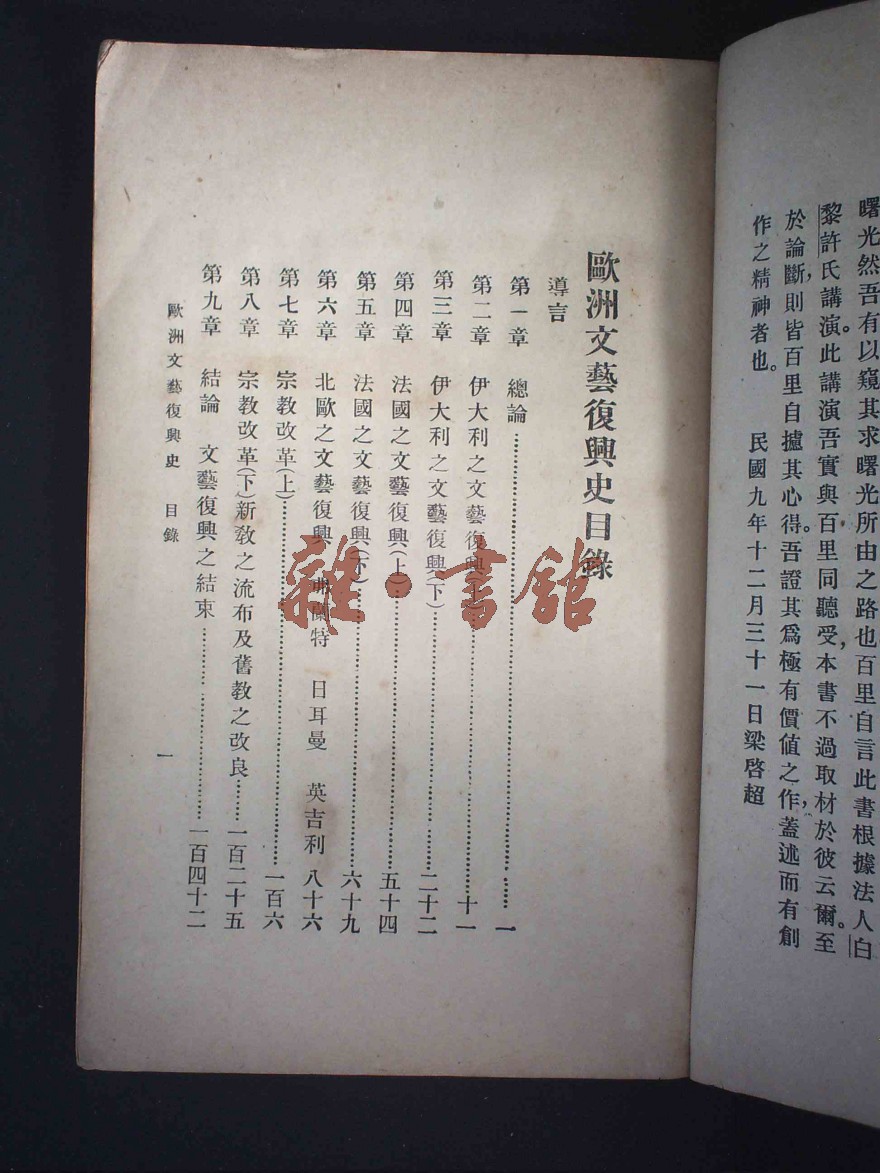 曙光然吾有以窺其求曙光所由之路也百里自言此書根據法人白
黎許氏講演。此講演吾實與百里同聽受,本書不過取材於彼云爾。至
於論斷,則皆百里自攄其心得。吾證其爲極有價値之作,蓋述而有創
作之精神者也。 民國九年十二月三十一日梁啓超
歐洲文藝復興史目錄
導言
第一章 總論……一
第二章 伊大利之文藝復興(上)……十一
第三章 伊大利之文藝復興(下)……二十二
第四章 法國之文藝復興(上)……五十四
第五章 法國之文藝復興(下)……六十九
第六章 北歐之文藝復興 蘭特 日耳曼 英吉利 八十六
第七章 宗教改革(上)……一百六
第八章 宗教改革(下)新敎之流布及舊教之改良……一百二十五
第九章 結論 文藝復興之結束……一百四十二
歐洲文藝復興史 目錄
一
雜·書館